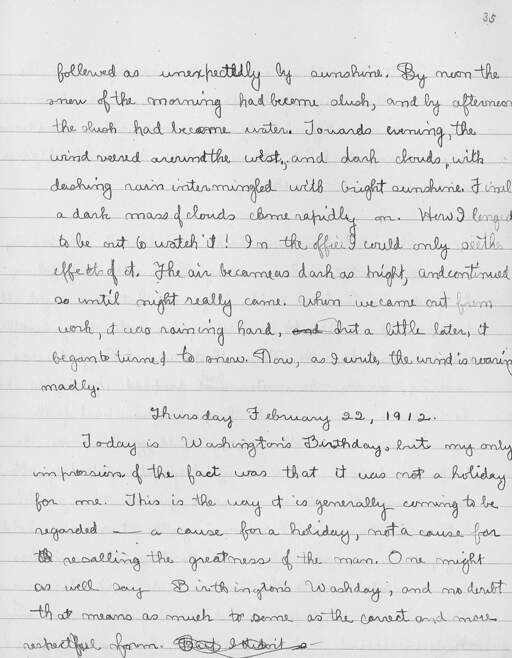 35
followed as unexpectedly by sunshine. By noon the
snow of the morning had become slush, and by afternoon
the slush had become water. Towards evening, the
wind veered around the west, and dark clouds, with
dashing rain intermingled with bright sunshine. Final
a dark mass of clouds came rapidly on. How I longed
to be out to watch it! In the office I could only see the
effects of it. The air became as dark as night, and continued
so until night really came. When we came out from
work, it was raining hard, and but a little later, it
began to turned to snow. Now, as I write, the wind is roaring
madly.
Thursday February 22, 1912.
Today is Washington's Birthday, but my only
impression of the fact was that it was not a holiday
for me. This is the way it is generally coming to be
regarded — a cause for a holiday, not a cause for
recalling the greatness of the man. One might
as well say Birthington's Washday, and no doubt
that means as much to some as the correct and more
respectful form.